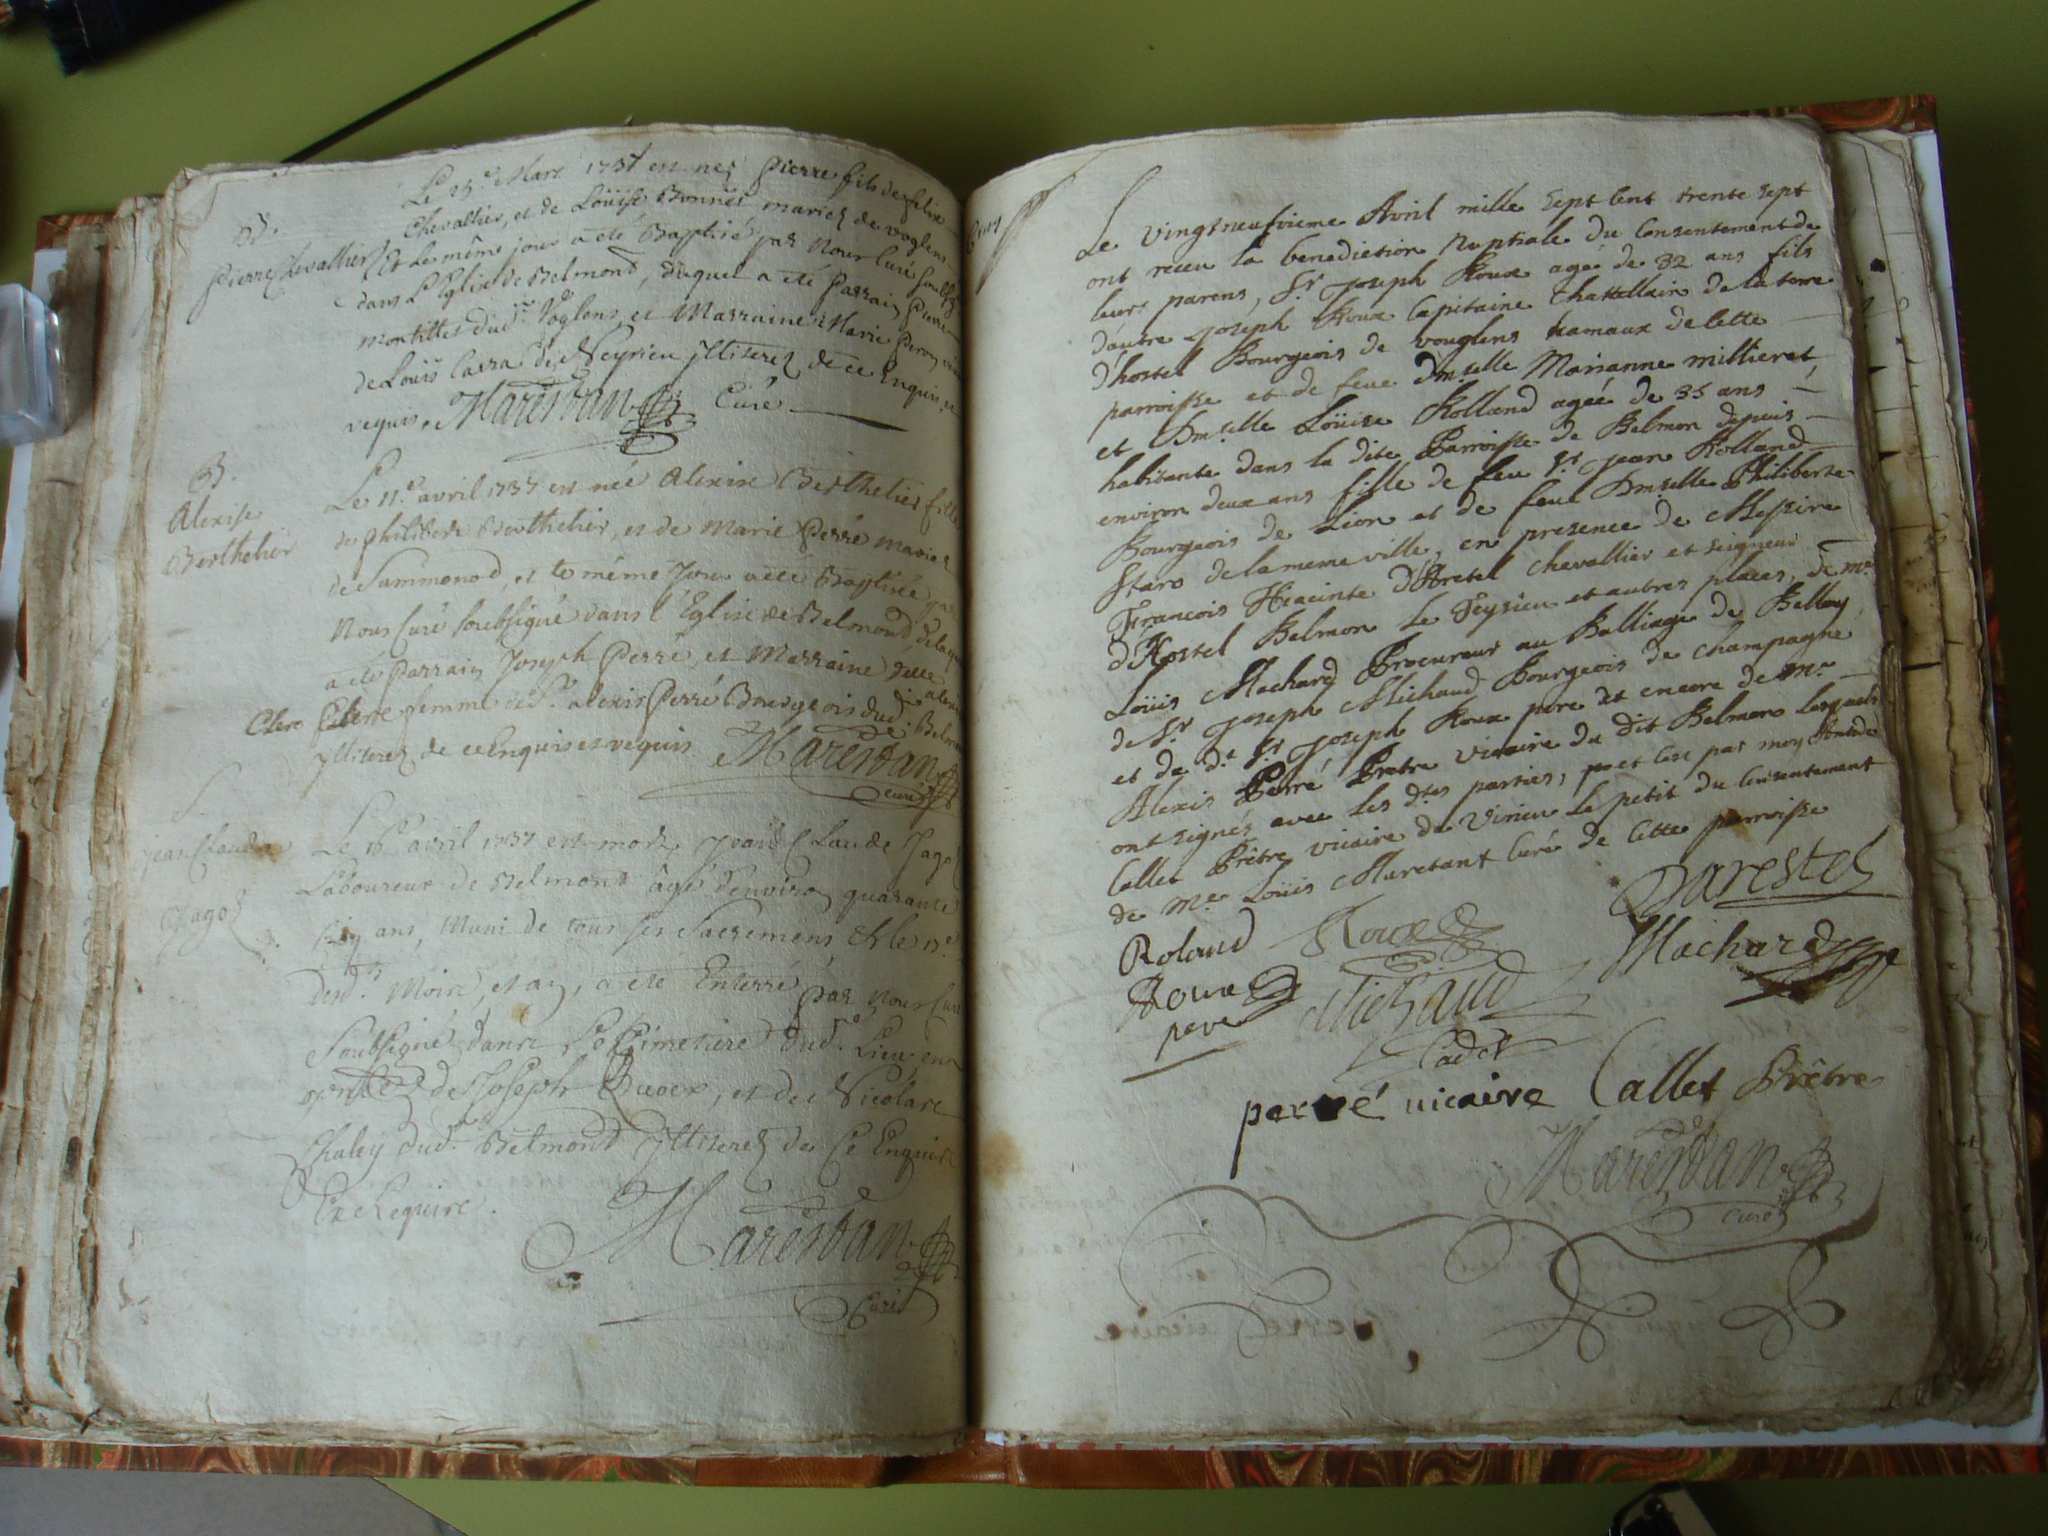 Le 25.e Mars 1737 est né Pierre fils de felix
B.
Pierre Chevallier
Chevallier, et de Loüise Bonnet mariez de voglens
Et le même jour a été Baptisé par Nous Curé
dans l'Eglise de Belmond, duquel a été Parrain Pierre
montillet dud. Voglens, et Marraine Marie
de Loüis Carra de Neyrieu Illiterez de ce Enquis, et
requis. Marestan Curé
B.
Alexise
Berthelier
Le 11.e avril 1737 est née Alexise Berthelier fille
de philibert Berthelier, et de Marie Perré mariez
de Sammonod, et le même Jour a été Baptisée par
Nous Curé soubsigné dans l'Eglise de Belmond, de laquelle
a été parrain Joseph Perré, et Marraine
femme de Sr. alexis Perré Bourgeois dud. Belmond
Illiterez de ce Enquis et requis. Marestan
curé
S.
jean Claude
Jagot
Le 16.e avril 1737 est mort Jean Claude Jagot
Laboureur de Belmond âgé d'environ quarante
ans, Muni de tous ses Sacremens, Et le 17.e
desd. Mois, et an, a été Enterré par Nous Curé
Soubsigné dans Le Cimetiere dud. Lieu, en
de Joseph, et de Nicolas
Chaley dud. Belmond Illiterez de Ce Enquis
Et Require.
Marestan
Curé
Le vingtneufvieme Avril mille sept cent trente sept
ont receu la benediction Nuptiale du Consentement de
leurs parens, Sr Joseph Roux agé de 32 ans fils
d'autre Joseph Roux Capitaine Chattellain de la terre
d'hostel Bourgeois de vouglens hamaux de Cette
parroisse et de feue Dmselle Marianne millieret,
et Dmselle Loüise Rolland agée de 35 ans
habitante dans la dite Parroisse de Belmon depuis
environ deux ans fille de feu Sr Jean Rolland
Bourgeois de Lion et de feue Dmselle Philiberte
Staro de la meme ville, en presence de Messire
Francois Hiacinte d'Arestel chevallier et seigneur
d'Hostel Belmon Le Feysieu et autres places, de mr
Loüis Machard Procureur au Balliage de Belley
de Sr. Joseph Michaud Bourgeois de Champagne
et de dt. Sr Joseph Roux pere et encore de Mr
Alexis Perré Prêtre vicaire du dit Belmon Lesquels
ont signés avec les dtes parties, par moy
Callet Prêtre vicaire de Virieu le petit du Consentement
de Me Loüis Marestant Curé de Cette parroisse
Roland Roux Darestel
Roux pere Michaud Machard
Cadet
perré vicaire Callet Prêtre
Marestan
Curé